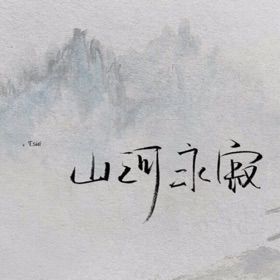 山河永寂